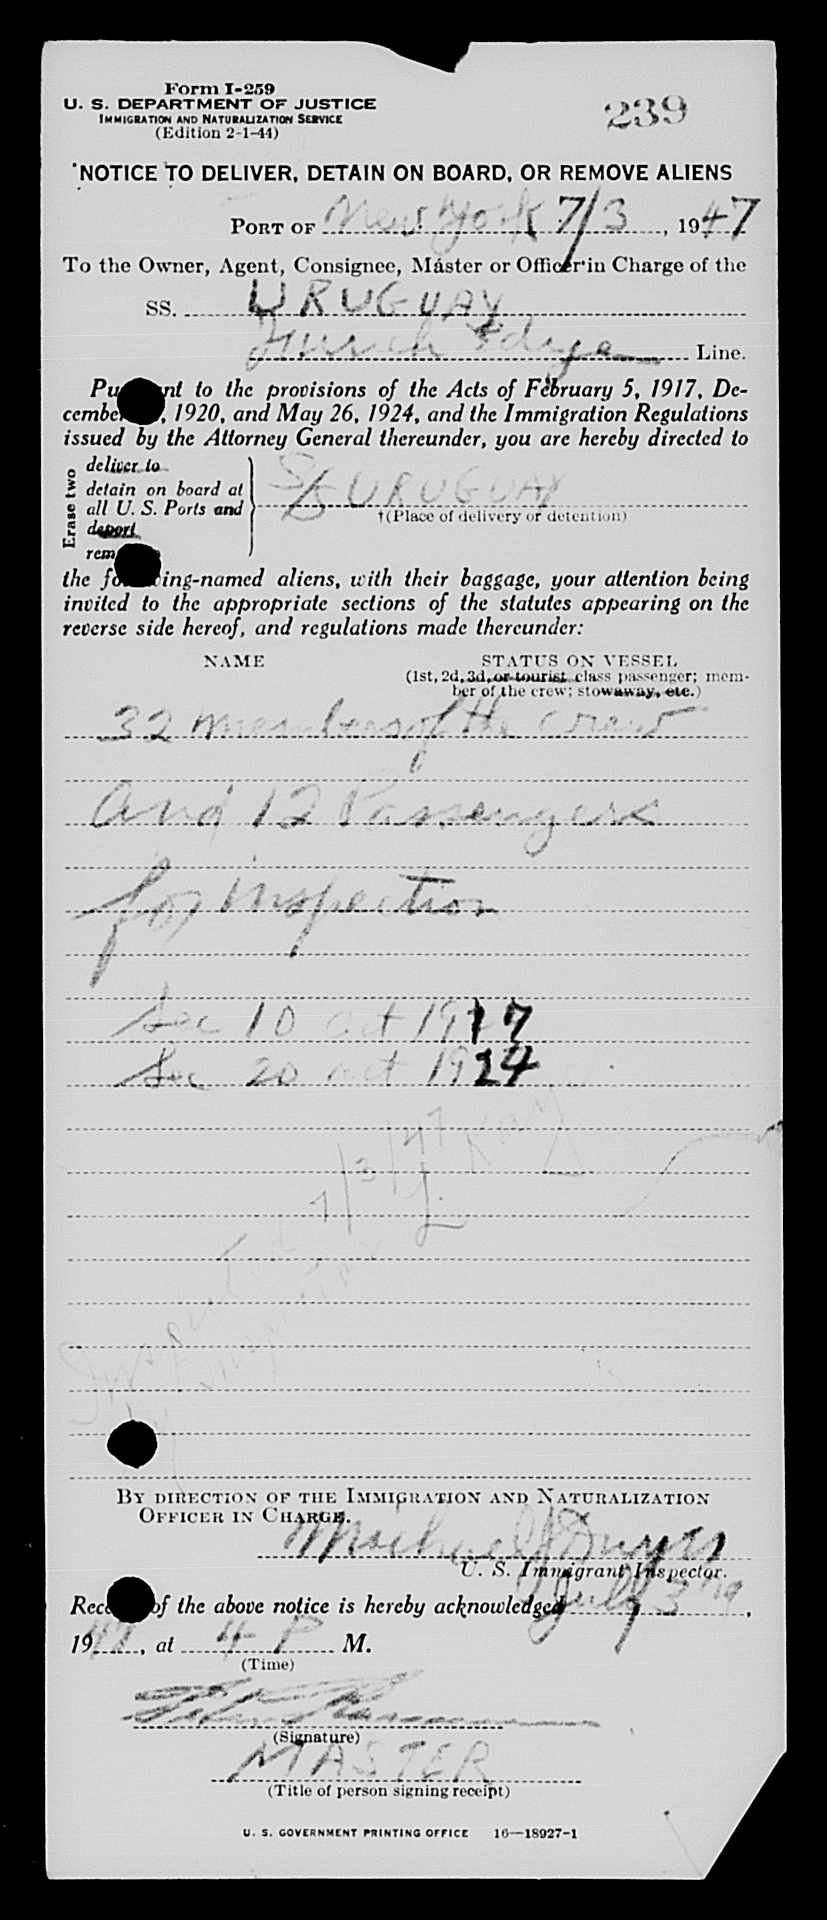 Form I-259
U. S. DEPARTMENT OF JUSTICE
IMMIGRATION AND NATURALIZATION SERVICE
(Edition 2-1-44)
239
NOTICE TO DELIVER, DETAIN ON BOARD, OR REMOVE ALIENS
PORT OF New York 7/3, 1947
To the Owner, Agent, Consignee, Master or Officer in Charge of the
SS. URUGUAY
Line.
Pu nt to the provisions of the Acts of February 5, 1917, De-
cembe , 1920, and May 26, 1924, and the Immigration Regulations
issued by the Attorney General thereunder, you are hereby directed to
Erase two
deliver to
detain on board at
all U. S. Ports and
deport
rem
SS URUGUAY
†(Place of delivery or detention)
the fo ing-named aliens, with their baggage, your attention being
invited to the appropriate sections of the statutes appearing on the
reverse side hereof, and regulations made thereunder:
NAME STATUS ON VESSEL
(1st, 2d, 3d, or tourist class passenger; mem-
ber of the crew; stowaway, etc.)
32 members of the crew
and 12 Passengers
for inspection
Sec 10 act 1917
Sec 20 act 1924
7/3/47
BY DIRECTION OF THE IMMIGRATION AND NATURALIZATION
OFFICER IN CHARGE.
Michael J Dwyer
U. S. Immigrant Inspector.
Rece of the above notice is hereby acknowledged July 3rd,
1947, at 4 P M.
(Time)
(Signature)
MASTER
(Title of person signing receipt)
U. S. GOVERNMENT PRINTING OFFICE 16—18927-1